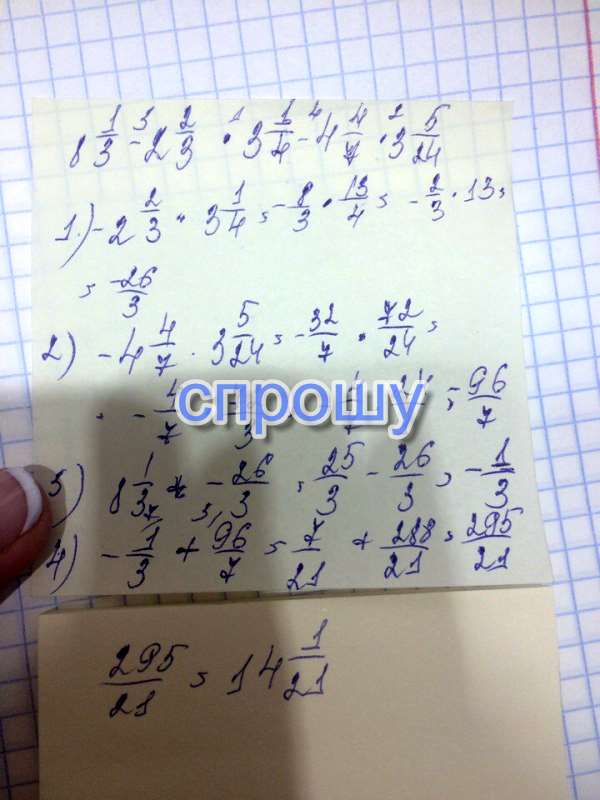 8 1/3 - 2 2/3 · 3 1/4 - 4 4/7 · 3 5/24
1.) - 2 2/3 · 3 1/4 = - 8/3 · 13/4 = - 2/3 · 13 =
= -26/3
2) - 4 4/7 · 3 5/24 = - 32/7 · 72/24 =
спрошу
= 96/7
8 1/3 + - 26/3 = 25/3 - 26/3 = - 1/3
4) - 1/3 + 96/7 = 7/21 + 288/21 = 295/21
295/21 = 14 1/21